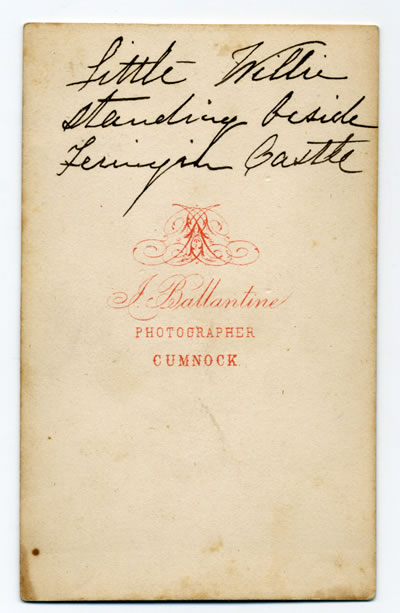 Little Willie
standing beside
Castle
J. Ballantine
PHOTOGRAPHER
CUMNOCK.